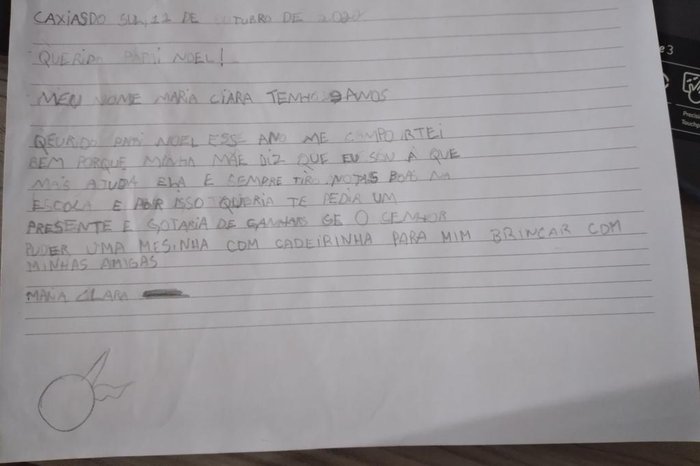 CAXIASDO SUL, 12 DE OUTUBRO DE 2020
QUERIDO PAPAI NOEL!
MEU NOME MARIA CLARA TENHO 9 ANOS
QEURIDO PAPAI NOEL ESSE ANO ME COMPORTEI
BEM PORQUE MINHA MÃE DIZ QUE EU SOU À QUE
MAIS AJUDA ELA E SEMPRE TIRO NOTAS BOAS NA
ESCOLA E POR ISSO QUERIA TE PEDIR UM
PRESENTE E GOTARIA DE GANHAR SE O CENHOR
PUDER UMA MESINHA COM CADEIRINHA PARA MIM BRINCAR COM
MINHAS AMIGAS
MARIA CLARA
e 3
Precision
Touchp